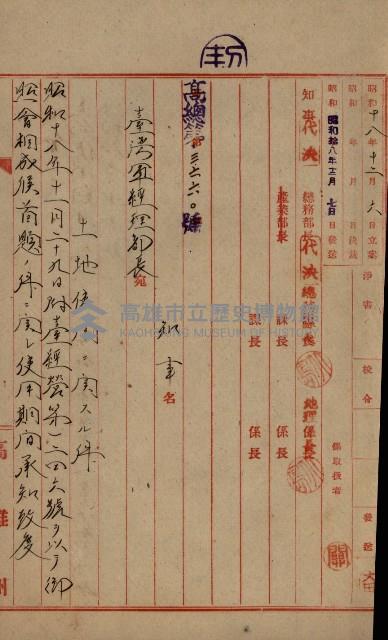 昭和十八年十二月六日立案 淨書 校合 發送
昭和 年 月 日決裁
昭和 昭和拾八年十二月七日發送 係取扱者
知事代決 總務部長代決 總務課長 地理係長
產業部長 課長 係長
課長 係長
高總第三六六〇號
知事名
臺灣軍經理部長宛
土地使用ニ関スル件
昭和十八年十一月二十九日附臺經營第一二四六號ヲ以テ御
照會相成候首題ノ件ニ関シ使用期間承知致度
高雄州
高雄市立歷史博物館
KAOHSIUNG MUSEUM OF HISTORY